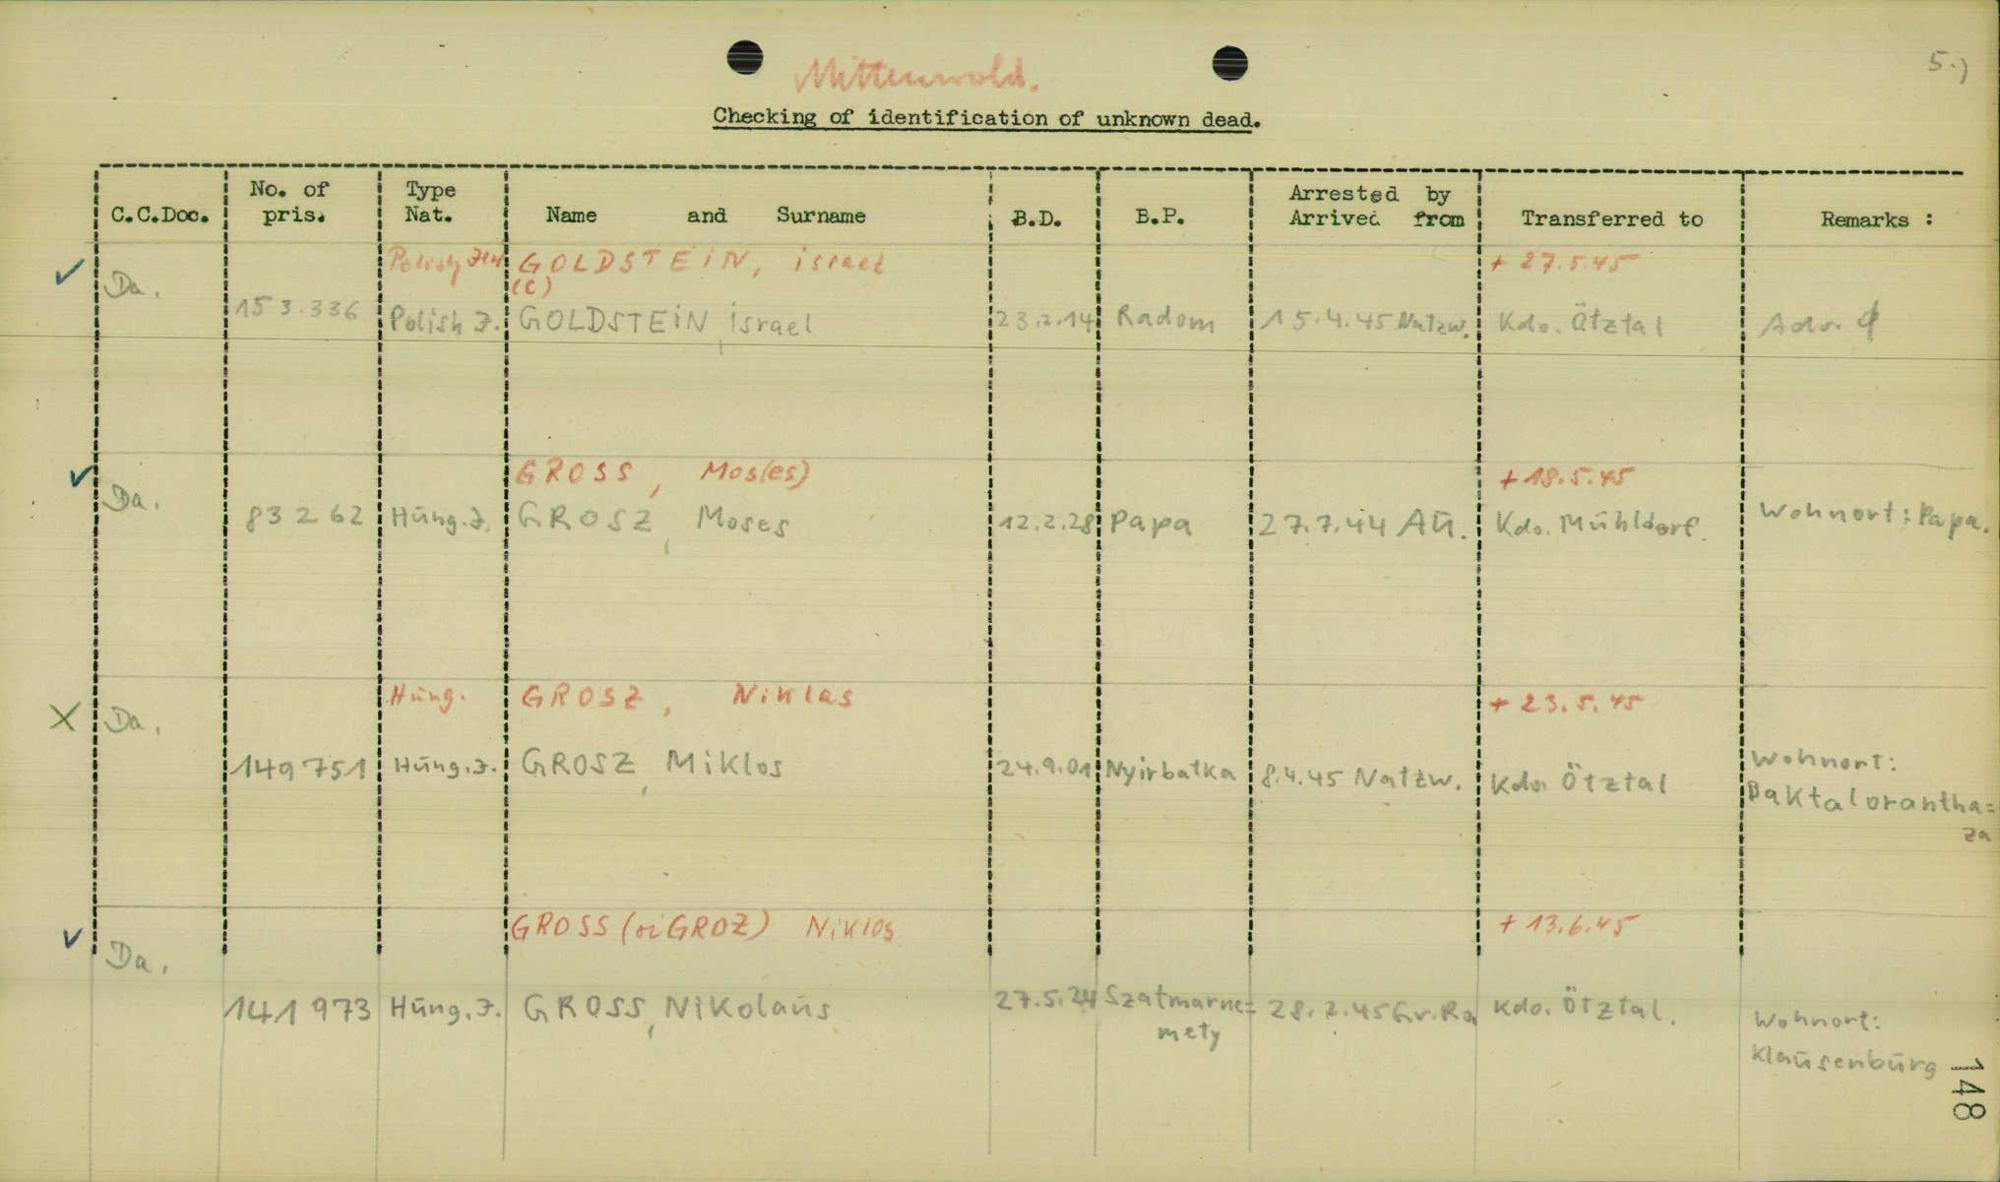 5.)
Mittenwald.
Checking of identification of unknown dead.
C.C.Doc. No. of pris. Type Nat. Name and Surname B.D. B.P. Arrested by Arrived from Transferred to Remarks :
Polish Jew GOLDSTEiN, israel + 27.5.45
(C)
Da. 153.336 Polish J. GOLDSTEiN, israel 23.2.14 Radom 15.4.45 Natzw. Kdo. Ötztal Adr. ∅
GROSS, Mos(es) + 18.5.45
Da. 83262 Hung.J. GROSZ, Moses 12.2.28 Papa 27.7.44 Au. Kdo. Mühldorf. Wohnort: Papa.
Hung. GROSZ, Niklas + 23.5.45
Da. 149751 Hung.J. GROSZ, Miklos 24.9.01 Nyirbatka 8.4.45 Natzw. Kdo. Ötztal Wohnort:
Baktalorantha=
za
GROSS (oi GROZ) Niklos + 13.6.45
Da. 141973 Hung.J. GROSS, Nikolaus 27.5.24 Szatmarne= 28.2.45 Gr.Ro Kdo. Ötztal. Wohnort:
mety Klausenburg
148